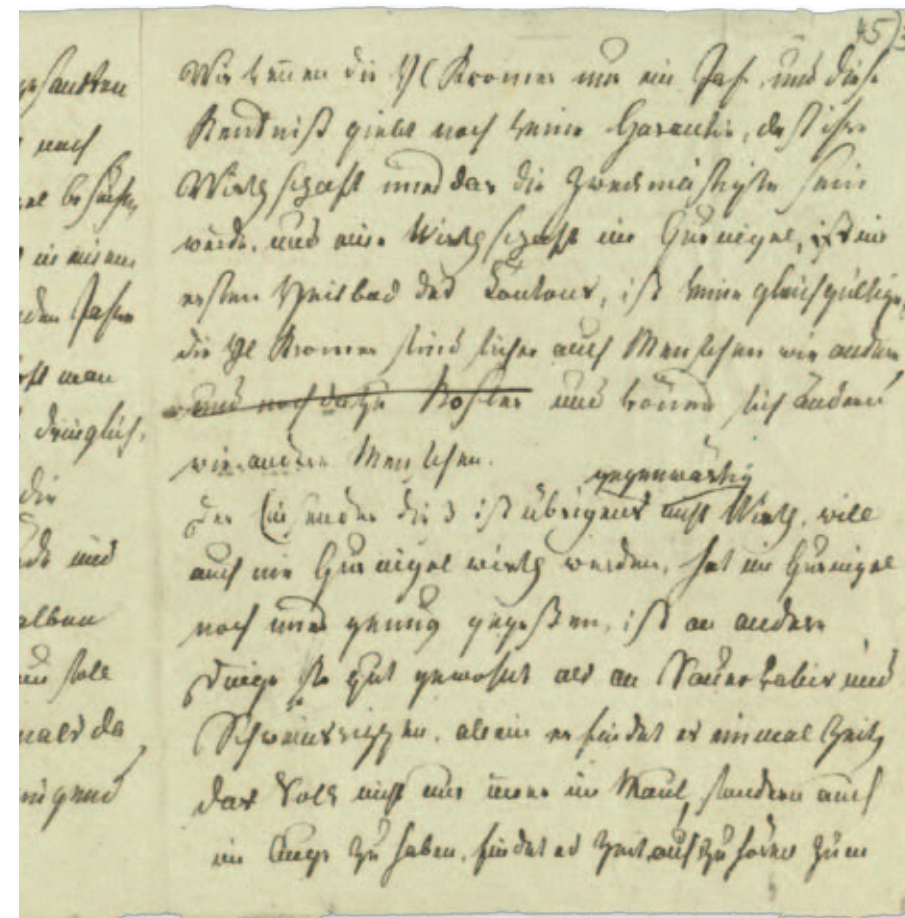 45)
gesandten
nach
besucht,
in einem
den Jahre
oft man
dringlich,
die
und
alben
soll
mals da
Wir kennen die HH Kromer nur ein Jahr, und diese
Kentniß giebt noch keine Garantie, daß ihre
Wirthschaft immerdar die zweckmäßigste sein
werde, und eine Wirthschaft im Gurnigel, ist im
ersten Heilbad des Kantons, ist keine gleichgültige,
die HH Kromer sind sicher auch Menschen wie andere
und noch dazu und können sich ändern
wie andere Menschen.
gegenwärtig
Der Einsender dies ist übrigens nicht Wirth, will
auch nie Gurnigel wirth werden, hat im Gurnigel
noch immer genug gegeßen, ist an andere
Dinge so gut gewohnt als an Sauerkabis und
Schweinsrippen, allein er findet es einmal Zeit,
das Volk nicht nur immer im Maul, sondern auch
im Auge zu haben, findet es Zeit aufzuhören zum